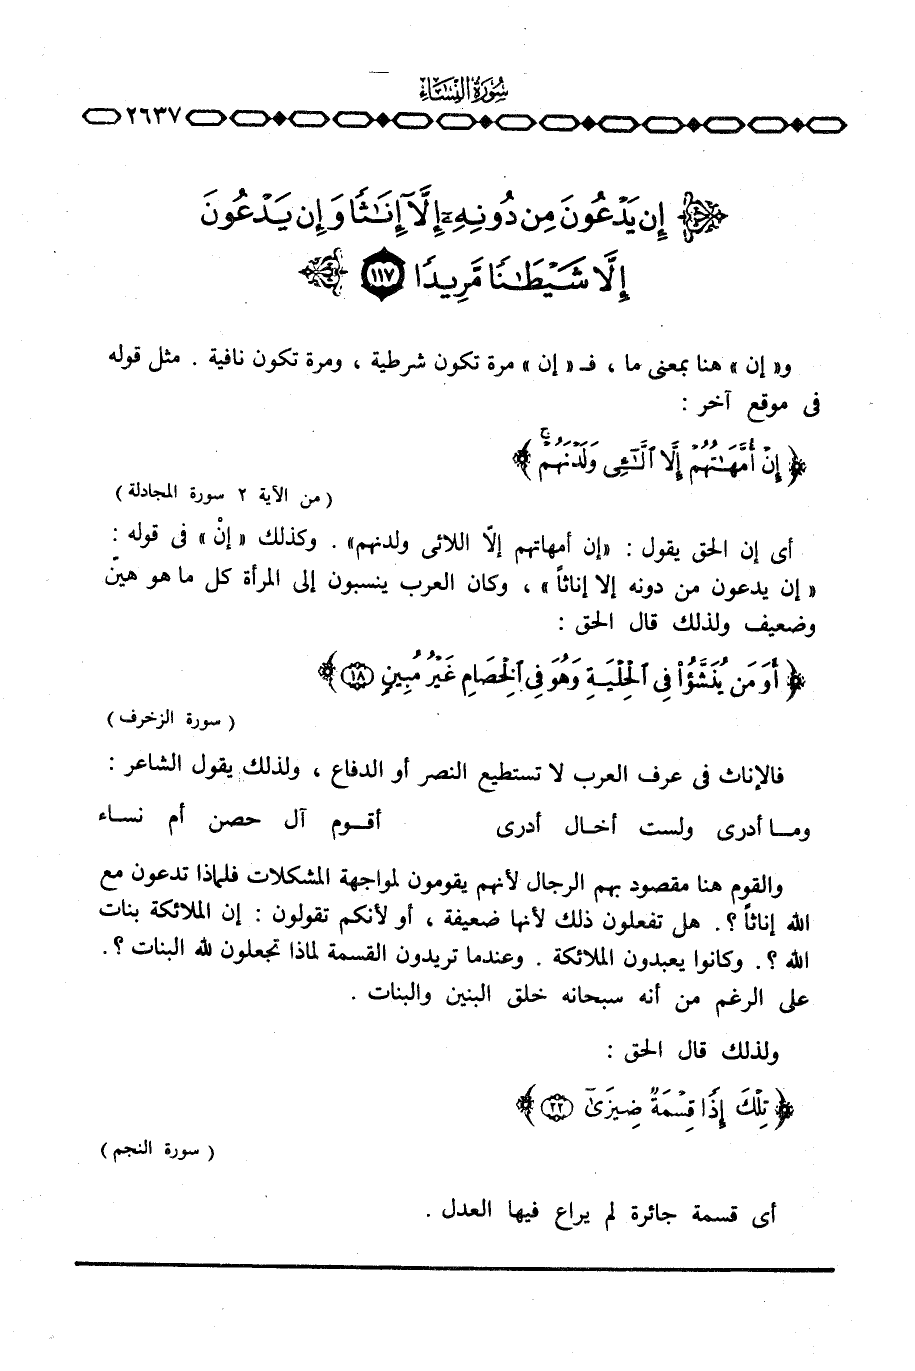 سُورَةُ النِّسَاءِ
٢٦٣٧
إِن يَدْعُونَ مِن دُونِهِۦٓ إِلَّآ إِنَٰثًا وَإِن يَدْعُونَ
إِلَّا شَيْطَٰنًا مَّرِيدًا ١١٧
و« إن » هنا بمعنى ما ، فـ « إن » مرة تكون شرطية ، ومرة تكون نافية . مثل قوله
فى موقع آخر :
﴿ إِنْ أُمَّهَٰتُهُمْ إِلَّا ٱلَّٰٓـِٔى وَلَدْنَهُمْ ۚ ﴾
( من الآية ٢ سورة المجادلة )
أى إن الحق يقول : «إن أمهاتهم إلّا اللائى ولدنهم» . وكذلك « إنْ » فى قوله :
« إن يدعون من دونه إلا إناثاً » ، وكان العرب ينسبون إلى المرأة كل ما هو هينّ
وضعيف ولذلك قال الحق :
﴿ أَوَمَن يُنَشَّؤُا۟ فِى ٱلْحِلْيَةِ وَهُوَ فِى ٱلْخِصَامِ غَيْرُ مُبِينٍ ١٨ ﴾
( سورة الزخرف )
فالإناث فى عرف العرب لا تستطيع النصر أو الدفاع ، ولذلك يقول الشاعر :
ومـا أدرى ولست أخـال أدرى أقـوم آل حصن أم نسـاء
والقوم هنا مقصود بهم الرجال لأنهم يقومون لمواجهة المشكلات فلماذا تدعون مع
الله إناثاً ؟. هل تفعلون ذلك لأنها ضعيفة ، أو لأنكم تقولون : إن الملائكة بنات
الله ؟. وكانوا يعبدون الملائكة . وعندما تريدون القسمة لماذا تجعلون لله البنات ؟.
على الرغم من أنه سبحانه خلق البنين والبنات .
ولذلك قال الحق :
﴿ تِلْكَ إِذًا قِسْمَةٌ ضِيزَىٰٓ ٢٢ ﴾
( سورة النجم )
أى قسمة جائرة لم يراع فيها العدل .